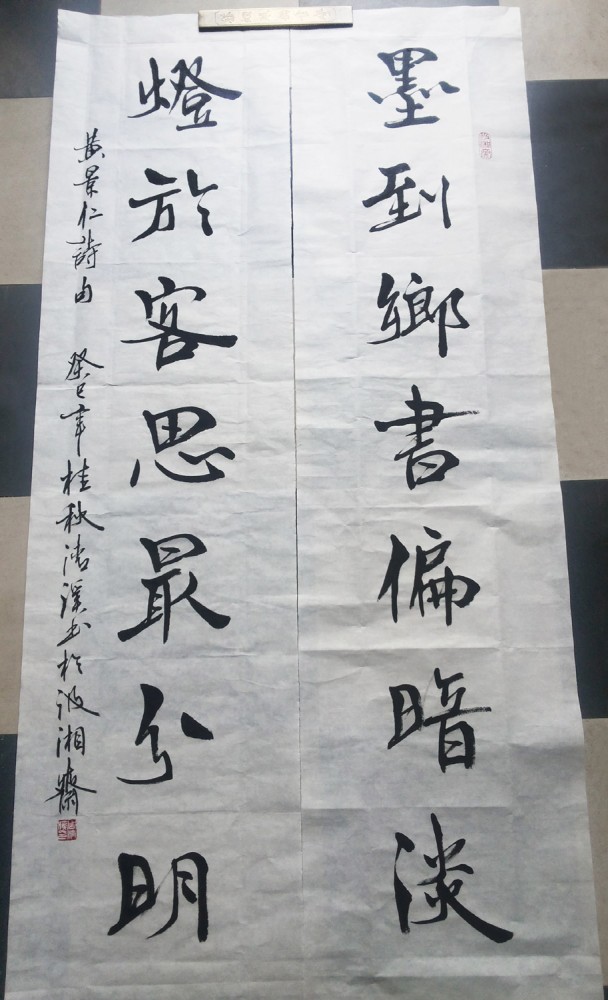 墨到鄉書偏暗淡
燈於客思最分明
黄景仁詩句 癸巳年桂秋浩溪书於汲湘齋